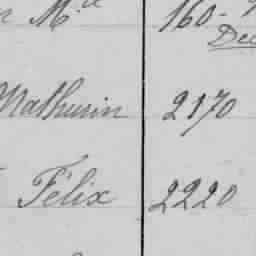 Mle 160-
Dec
Mathurin 2170
Félix 2220